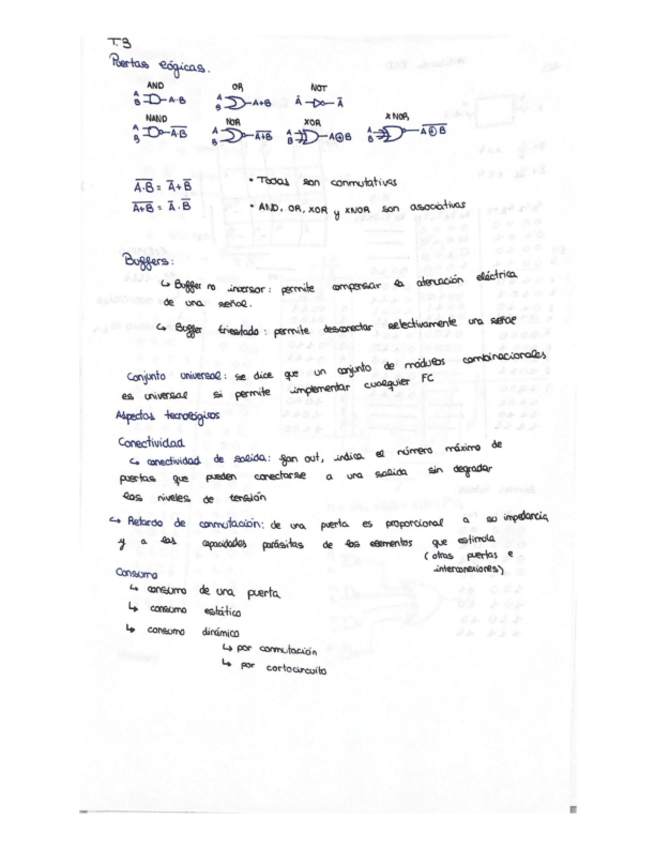 T.3
Puertas lógicas.
AND OR NOT
A B A·B A B A+B A Ā
NAND NOR XOR XNOR
A B A̅·̅B̅ A B A̅+̅B̅ A B A⊕B A B A̅⊕̅B̅
A̅·̅B̅ = A̅+B̅ • Todas son conmutativas
A̅+̅B̅ = A̅·B̅ • AND, OR, XOR y XNOR son asociativas
Buffers:
↳ Buffer no inversor: permite compensar la atenuación eléctrica
de una señal.
↳ Buffer triestado: permite desconectar selectivamente una señal
Conjunto universal: se dice que un conjunto de módulos combinacionales
es universal si permite implementar cualquier FC
Aspectos tecnológicos
Conectividad
↳ conectividad de salida: fan out, indica el número máximo de
puertas que pueden conectarse a una salida sin degradar
los niveles de tensión
↳ Retardo de conmutación: de una puerta es proporcional a su impedancia
y a las capacidades parásitas de los elementos que estimula
(otras puertas e
interconexiones)
Consumo
↳ consumo de una puerta
↳ consumo estático
↳ consumo dinámico
↳ por conmutación
↳ por cortocircuito